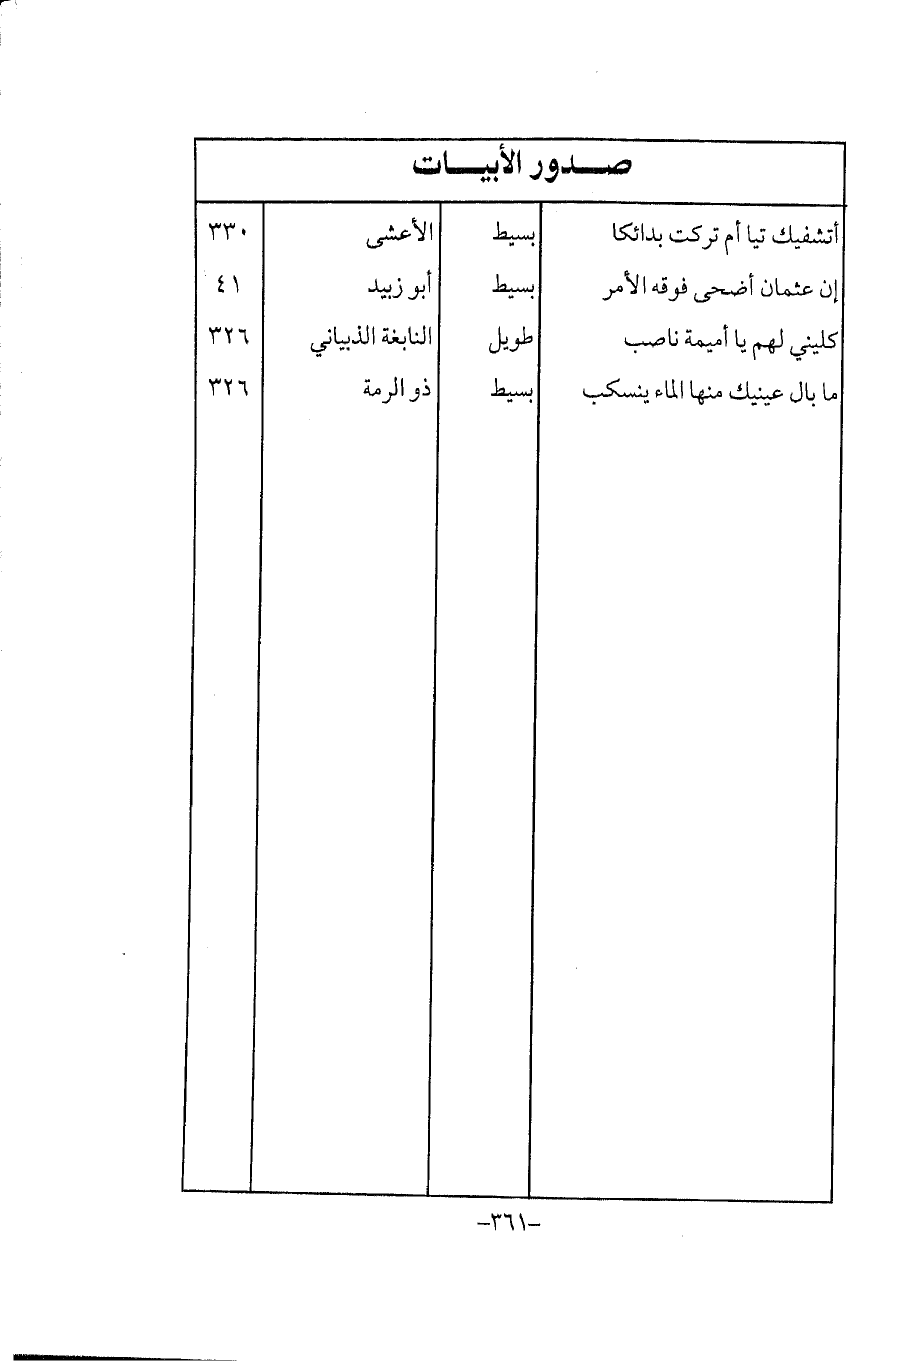 صدور الأبيات
أتشفيك تيا أم تركت بدائكا بسيط الأعشى ٣٣٠
إن عثمان أضحى فوقه الأمر بسيط أبو زبيد ٤١
كليني لهم يا أميمة ناصب طويل النابغة الذبياني ٣٢٦
ما بال عينيك منها الماء ينسكب بسيط ذو الرمة ٣٢٦
-٣٦١-